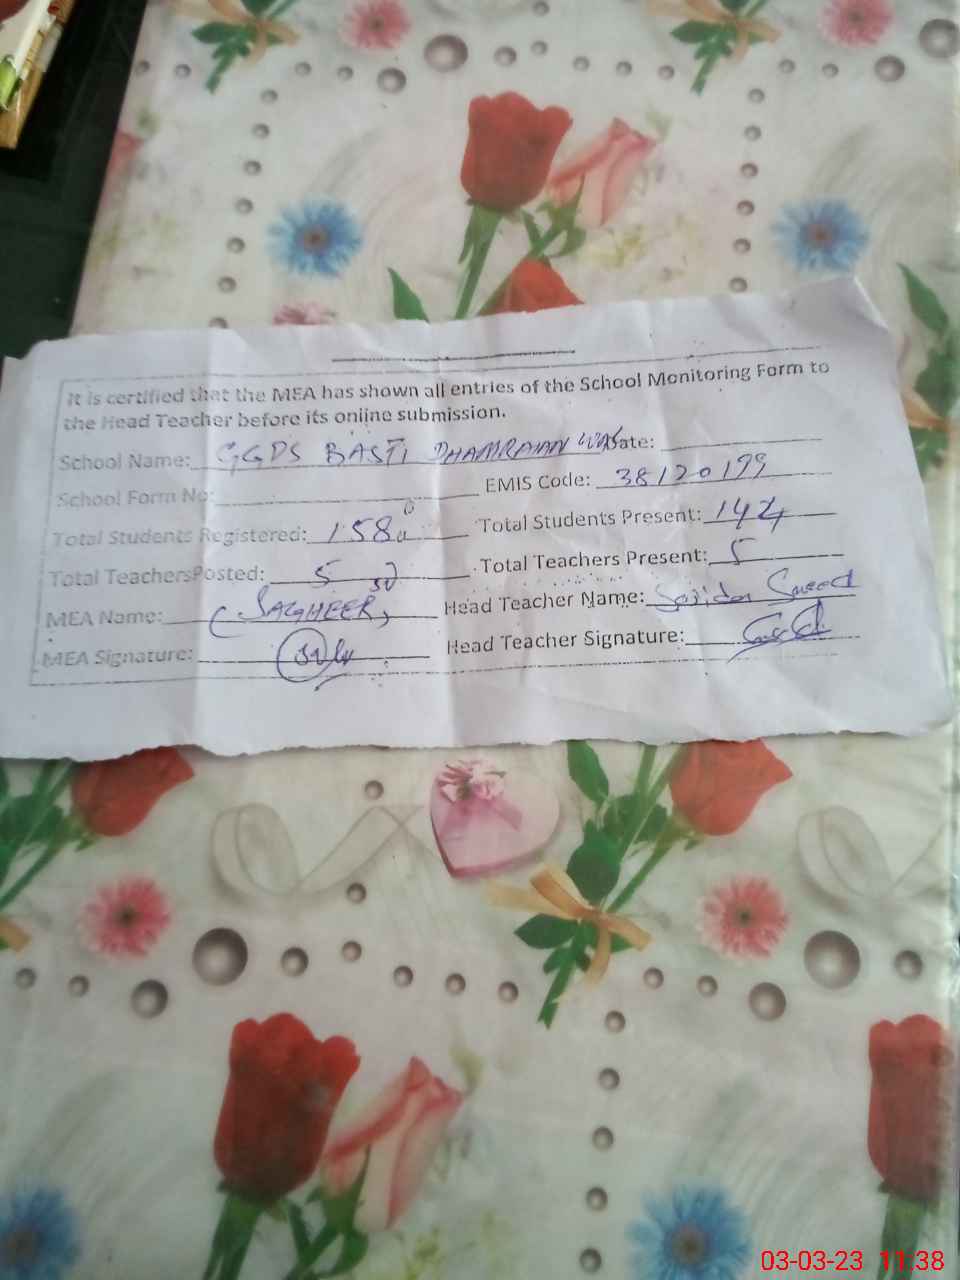 It is certified that the MEA has shown all entries of the School Monitoring Form to
the Head Teacher before its online submission.
School Name: GGPS BASTI DHAMRAIAN WAS Date:
School Form No: EMIS Code: 38120199
Total Students Registered: 158 Total Students Present: 142
Total Teachers Posted: 5 Total Teachers Present: 5
MEA Name: SAGHEER Head Teacher Name: Saeed
MEA Signature: Head Teacher Signature:
03-03-23 11:38